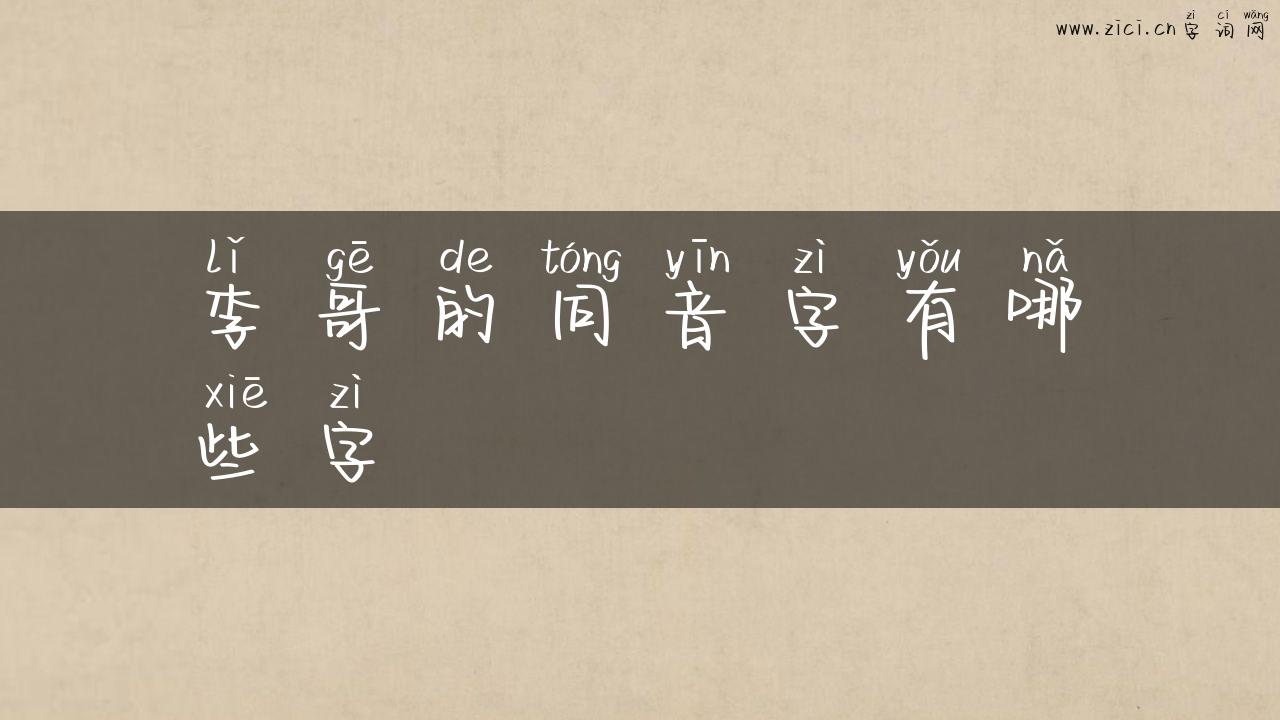 zì cí wǎng
www.zici.cn 字 词 网
lǐ gē de tóng yīn zì yǒu nǎ
李 哥 的 同 音 字 有 哪
xiē zì
些 字